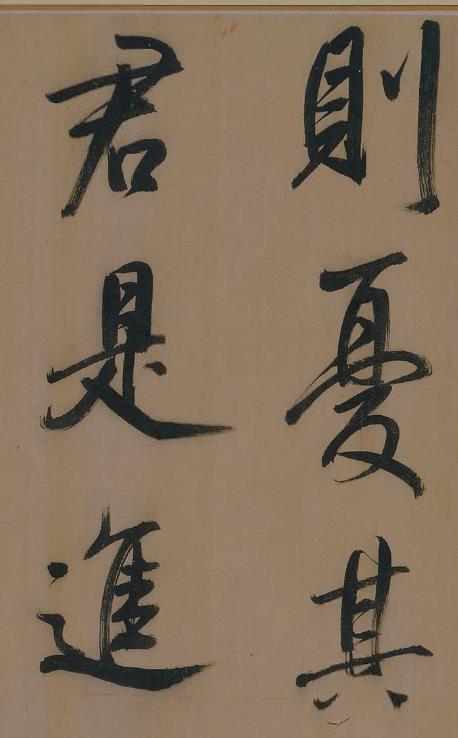 則憂其
君是進